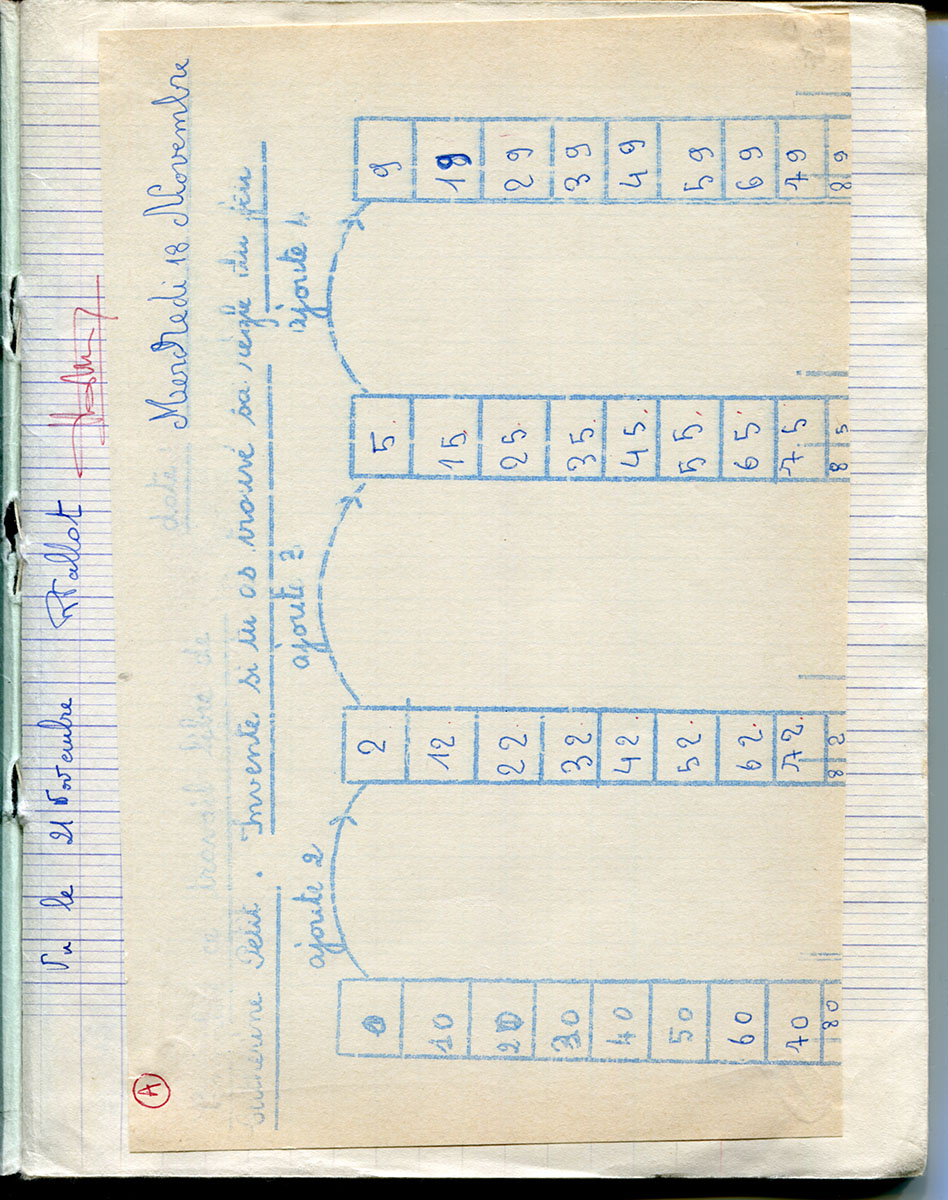 Vu le 21 Novembre
A
Mercredi 18 Novembre
Petit. Invente si tu as trouvé sa règle du jeu
ajoute 2 ajoute 3 ajoute 4
0 2 5 9
10 12 15 19
20 22 25 29
30 32 35 39
40 42 45 49
50 52 55 59
60 62 65 69
70 72 75 79
80 82 85 89